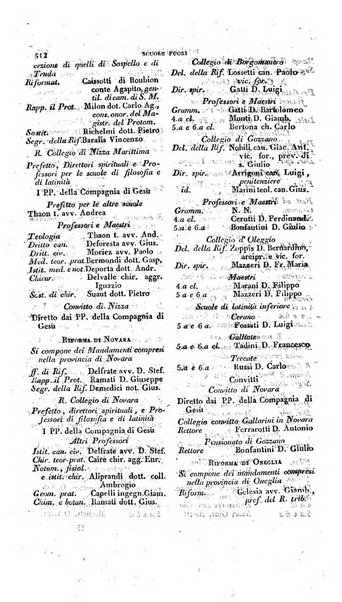 512 SCUOLE FUORI
cezione di quelli di Sospello e di
Tenda
Riformat. Caissotti di Roubion
conte Agapito, gen-
til. di cam. di S. M.
Rapp. il Prot. Milon dot. Carlo Ag.,
cons. onor. del Ma-
gistr. del Protom.
Sostit. Richelmi dott. Pietro
Segr. della Rif. Baralis Vincenzo
R. Collegio di Nizza Marittima
Prefetto, Direttori spirituali e Pro-
fessori per le scuole di filosofia e
di latinità
I PP. della Compagnia di Gesù
Prefetto per le altre scuole
Thaon t. avv. Andrea
Professori e Maestri
Teologia Thaon t. avv. And.
Dritto can. Deforesta avv. Gius.
Dritto civ. Massa avv. Ruffino
Med. teor. prat. Bermondi dott. Gasp.
Istit. med. e not. Deporta dott. Ag.
Chirur. Delvalle chirurg. all.
Ignazio
Sost. di chir. Suaut dott. Pietro
Convitto di Nizza
Diretto dai PP. della Compagnia di
Gesù
RIFORMA DI NOVARA
Si compone dei Mandamenti compresi
nella provincia di Novara
ff. di Rif. Delfrate avv. D. Stef.
Rapp. il Prot. Ramati D. Giuseppe
Segr. della Rif. Denedici not. Gius.
R. Collegio di Novara
Prefetto, direttori spirituali, e Pro-
fessori di filosofia e di latinità
I PP. della Compagnia di Gesù
Altri Professori
Istit. can. civ. Delfrate avv. D. Stef.
Chir. teor-prat. Caire chir. ang. Engen.
Notom., fisiol.
e istit. chir. Aliprandi dott. coll.
Ambrogio
Geom. prat. Capelli ingegn. Giam.
Istit. civ. Ramati dott. Carlo
Collegio di Borgomanero
Del. della Rif. Lossetti can. Paolo
vic. for.
Dir. spir. Gatti D. Luigi
Professori e Maestri
Gramm. Gatti D. Bartolomeo
4.a cl. Monti D. Giamb.
5.a e 6.a Bertona ch. Carlo
Collegio di Gozzano
Del. della Rif. Nobili can. Giac. Ant.
vic. for., prev. di
s. Giulio
Dir. spir. Arrigoni can. Luigi,
penitenziere
id. Marini teol. can. Gius.
Professori e Maestri
Gramm. N. N.
4.a cl. Cerutti D. Ferdinando
5.a e 6.a Bonfantini D. Giulio
Collegio d'Oleggio
Del. della Rif. Zoppis D. Bernardino,
arcipr. e vic. for.
Dir. spir. Mazzeri D. Fr. Maria
Maestri
4.a cl. Marani D. Filippo
5.a e 6.a Mazzeri D. Filippo
Scuole di latinità inferiore
Cerano
5.a e 6.a Fossati D. Luigi
Galliate
5.a e 6.a cl. Tadini D. Francesco
Trecate
5.a e 6.a Russi D. Carlo
Convitti
Convitto di Novara
Diretto dai PP. della Compagnia di
Gesù
Collegio convitto Gallarini in Novara
Rettore Ferrarotti D. Antonio
Pensionato di Gozzano
Rettore Bonfantini D. Giulio
RIFORMA DI ONEGLIA
Si compone dei mandamenti compresi
nella provincia di Oneglia
Riform. Gelesia avv. Giamb.,
pref. del R. trib.